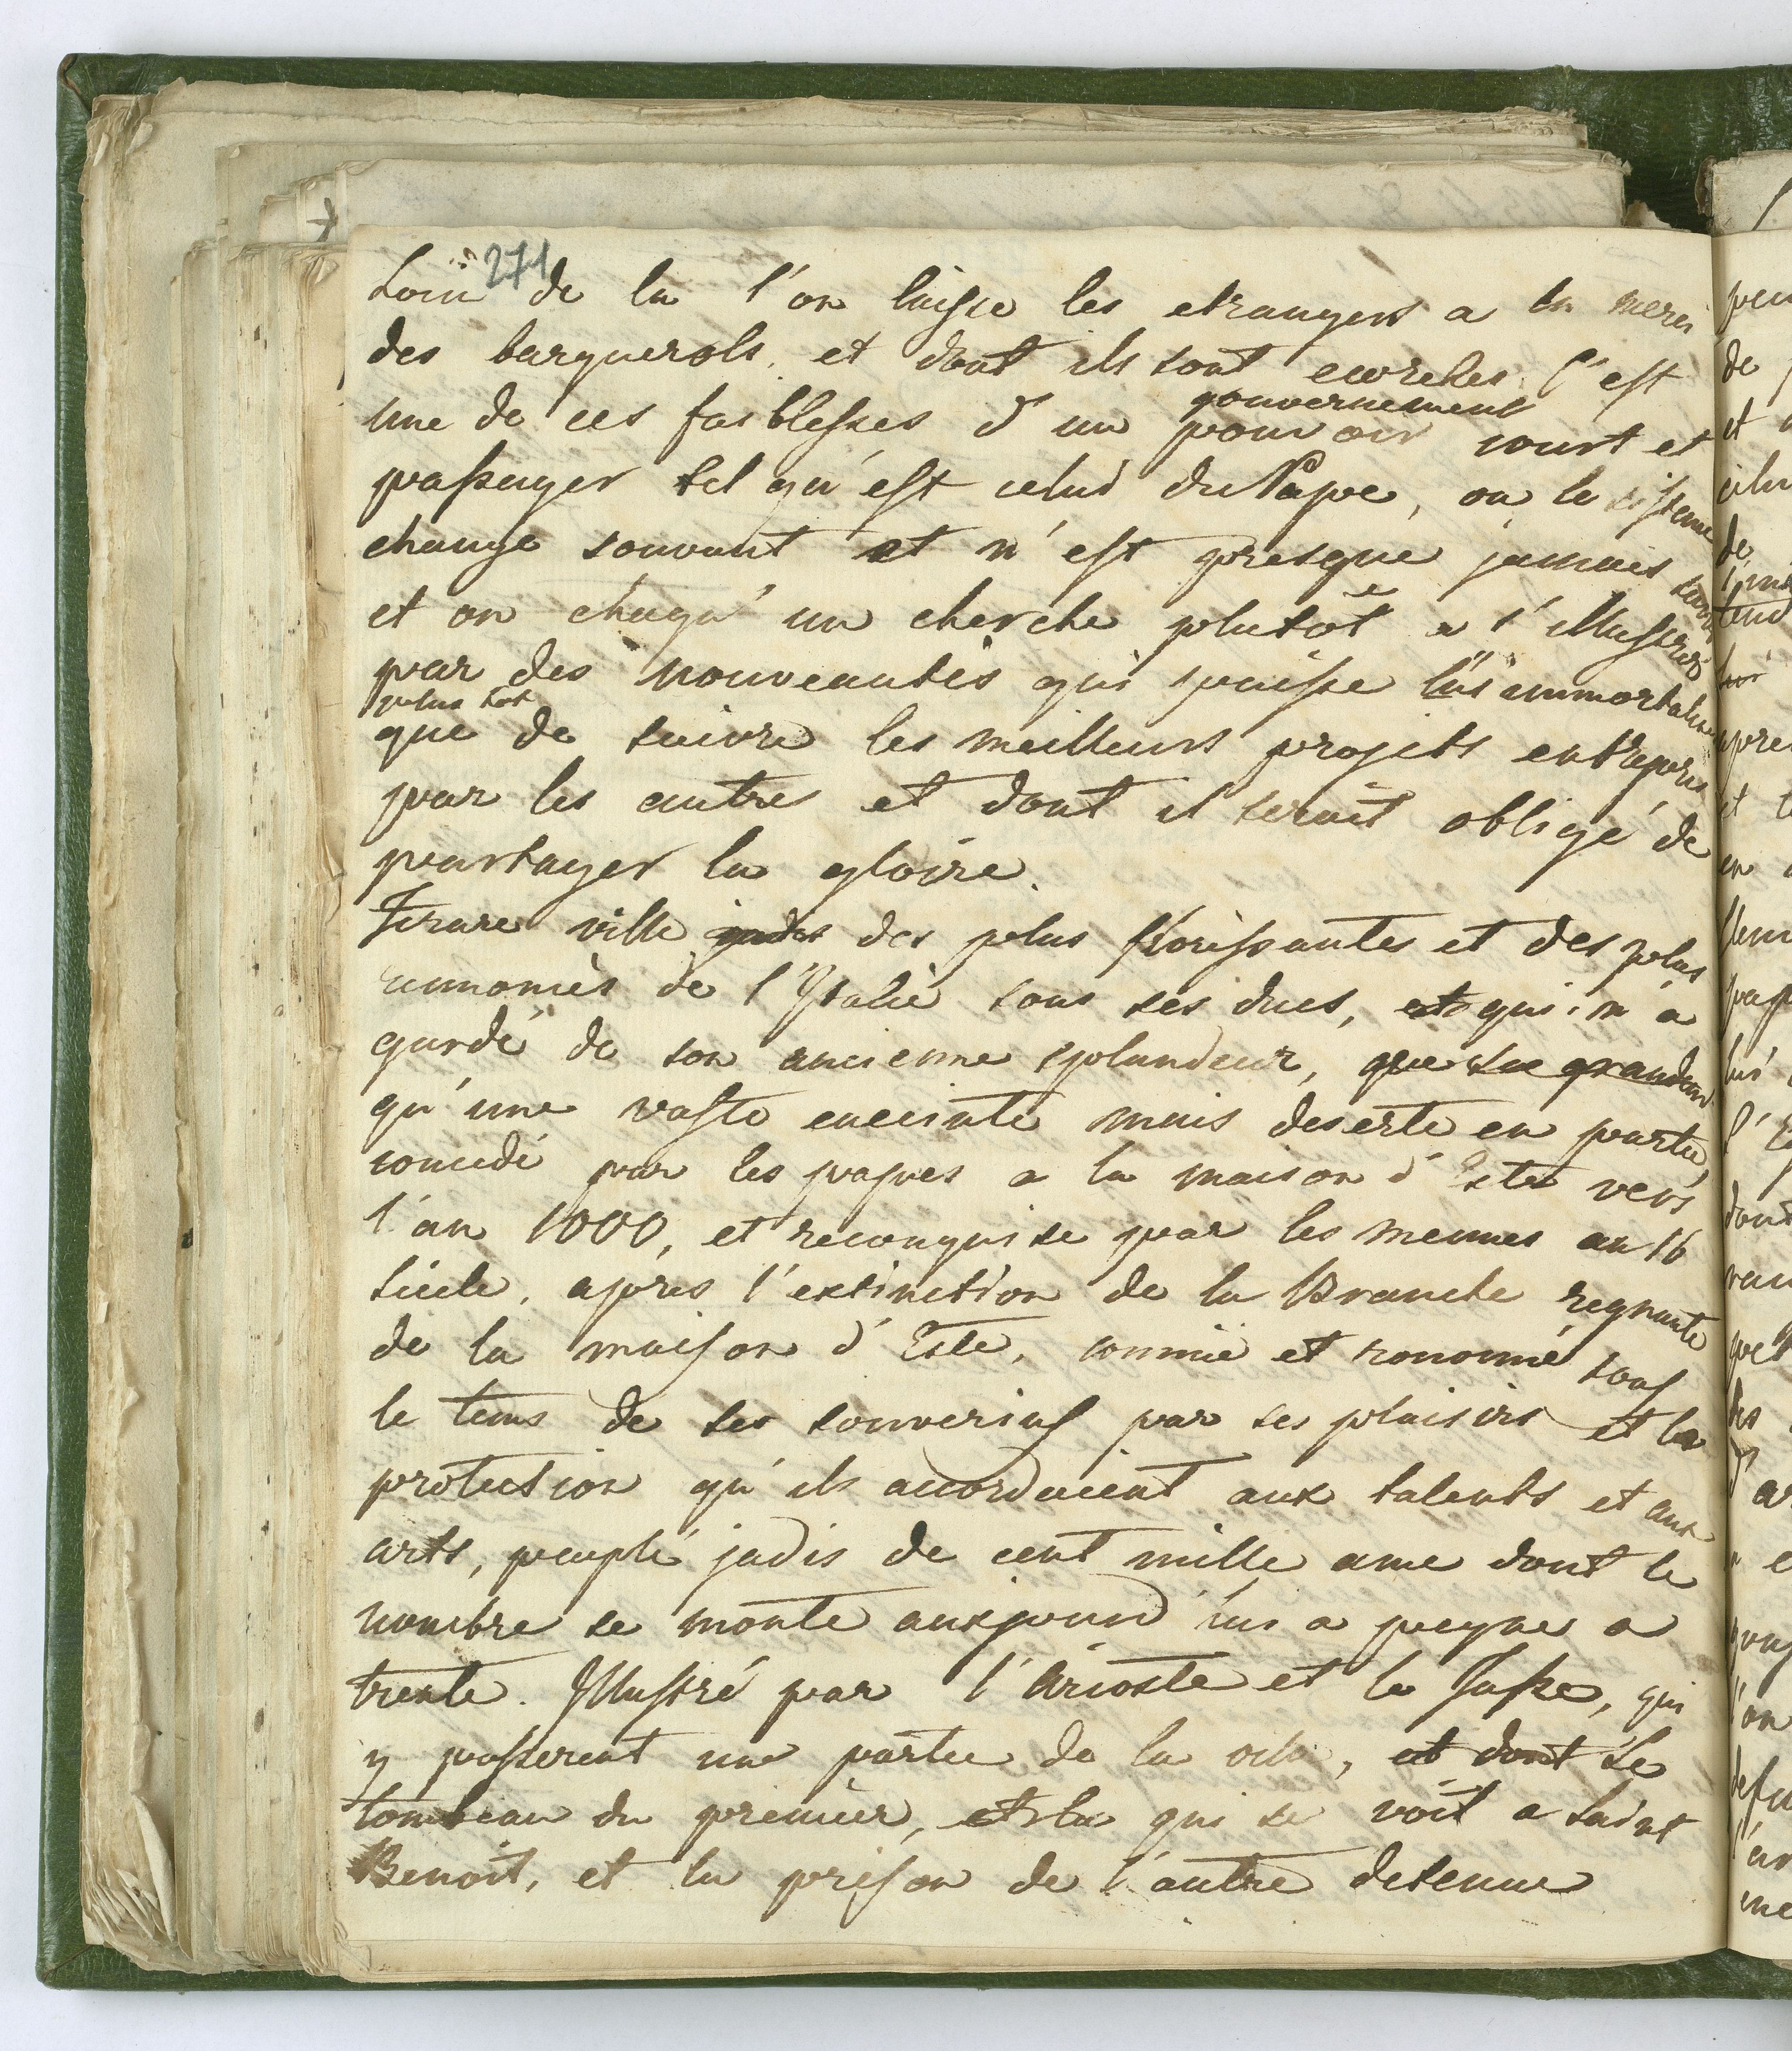 271
Loin de la l'on laisse les etrangers a la merci
des barquerols. et dont ils sont ecorchés. C'est
gouvernement
une de ces faiblesses d'un pouvoir court et
passager tel qu'est celui du Pape, ou le sisteme
change souvant et n'est presque jamais
et on chaqu'un cherche plutôt a s'illustrer
par des nouveautés qui puisse lui immortaliser
plus tot
que de suivre les meilleurs projets entrepris
par les autres et dont il serait obligé de
partager la gloire.
Ferare ville jadis des plus florissantes et des plus
renomiés de l'Italie sous ses ducs, et qui n'a
gardé de son ancienne splandeur, que sa grandeur
qu'une vaste enceinte mais deserte en partie,
concedé par les papes a la maison d'Este vers
l'an 1000, et reconquise par les memes au 16
siècle, apres l'extinction de la Branche regnante
de la maison d'Este, connüe et renomé sous
le tems de ses souverins par ses plaisirs et la
protection qu'ils accordaient aux talents et aux
arts, peuplé jadis de cent mille ame dont le
nombre se monte aujourd'hui a peyne a
trente. Illustré par l'Arioste et le Tasse, qui
y passerent une partie de la vie, et dont le
tombeau du premier, qui se voit a Saint
Benoit, et la prison de l'autre detenue